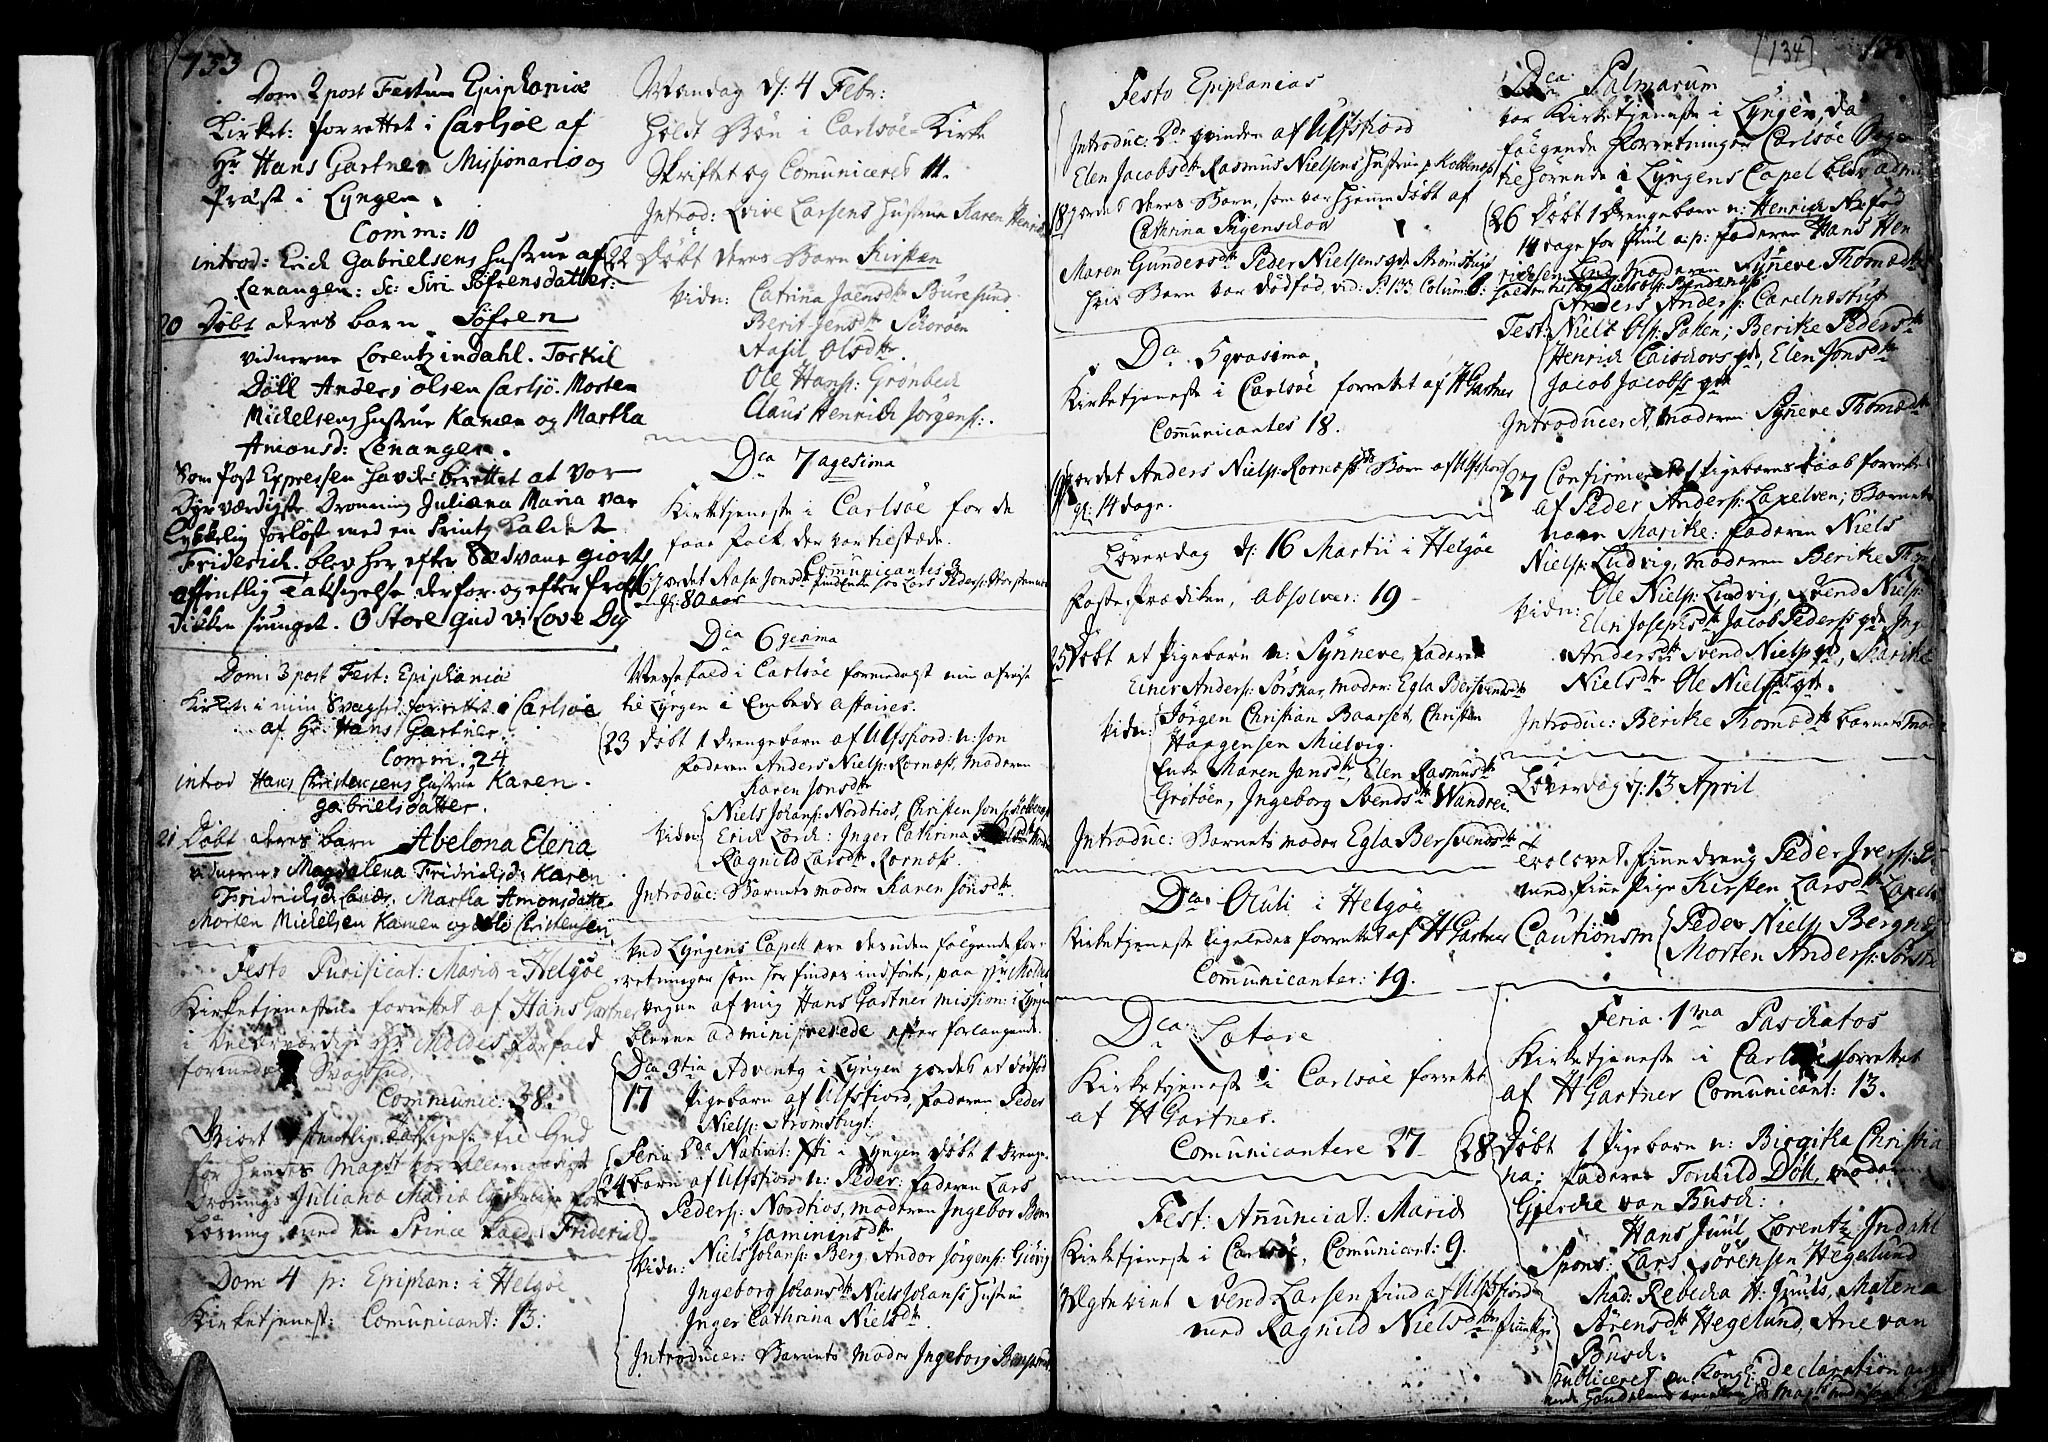 133
Dom 2 post Festum Epiphaniæ
Kirket: forrettet i Carlsöe af
Hr Hans Gartner Missionario og
Præst i Lyngen.
Comm: 10
introd: Erick Gabrielsens hustrue af
Lenangen: Sc: Siri Söfrensdatter:
20 Döbt deres barn Söfren
vidnerne Lorentz indahl. Torkil
Döll Anders Olsen Carlsö. Morten
Mickelsens hustrue Kamen og Martha
Amonsd: Lenangen.
Som Post Expressen havde berettet at vor
Dyrværdigste Dronning Juliana Maria var
lykkelig forlöst med en Printz kaldet
Friderich. blev her efter Sædvane giort
offentlig Taksigelse derfor. og efter Præ
diken siunget. O Store gud vi Love Dig
Dom: 3 post Fest: Epiphaniæ
Kirket: i min Svaghed forrettet i Carlsöe
af Hr: Hans Gartner.
Comm. 24
introd Hans Christensens hustrue Karen
gabrielsdatter.
21 Döbt deres barn Abelona Elena
vidnerne Magdalena Fridrichsd: Karen
Fridrichsd: Martha Amonsdatter
Morten Mickelsen Kamen og Christensen
Festo Purificat: Mariæ i Helgöe
Kirketjenesten forrettet af Hans Gartner
i Velærværdige Hr Moldes forfald
formedelst Svaghed,
Communic: 38.
Giort offentlig Taksigelse til Gud
for hendes Mayst vor Allernaadigste
Dronnings Juliana Mariæ lykkelige for
lösning med en Prince kaldet Friderich
Dom 4 p: Epiphan: i Helgöe
Kirketjenest: Comunicant: 13.
Mandag d: 4 Febr:
holdt Bön i Carlsöe Kirke
Skriftet og Comuniceret 11.
Introd: Larsens hustrue Karen Henrichs
22 Döbt deres Barn Kirsten
Vidn: Catrina Jaensdtr Buresund
Berit Jensdtr Skoröen
Aasil Olsdtr.
Ole Hans: Grönbeck
Claus Henrich Jörgens:.
Dca 7 agesima
Kirketjeneste i Carlsöe for de
faae folk der var tilstæde.
Comunicantes
16 Jordet Aasa Jonsdtr Lars Peders:
gl: 80 aar
Dca 6 gesima
Messefald i Carlsöe formedelst min afreise
til Lyngen i Embeds affaires.
23 döbt 1 drengebarn af Ulfsfiord: n: Jon
faderen Anders Niels: Rornæss, moderen
Karen Jonsdtr
Vidn: Niels Johans: Nordtios, Christen Jons:
Erich Lorch: Inger Cathrina
Ragnild Larsdtr Rornæs.
Introduc: Barnets moder Karen Jonsdtr.
Ved Lyngens Capell ere desuden fölgende for-
retninger som her findes indförte, paa Hr Moldes
vegne af mig Hans Gartner mission: i Lyngen
blevne administrerede efter forlangende.
Dca 3tia Adventg i Lyngen jordet et dödföd
17 Pigebarn af Ulfsfiord, faderen Peder
Niels: Strömsbugt.
Feria 2da Nativit: Xti i Lyngen döbt 1 Drenge-
24 barn af Ulfsfiord n: Peder: faderen Lars
Peders: Nordtios, moderen Ingebor Ben-
jaminisdtr
Vidn: Niels Johans: Berg, Andor Jörgens: Giövig
Ingeborg Johansdtr Niels Johans: Hustrue
Inger Cathrina Nielsdtr.
Introducer: Barnets Moder Ingeborg
[134]
Festo Epiphanias
Introduc: 2de qvinder af Ulfsfiord
Elen Jacobsdtr Rasmus Nielsens hustrue
18 jordet deres Barn, som var hjemmedöbt af
Cathrina
Maren Gundersdtr Peder Nielsens qde Strömsbugt
hvis Barn var dödföd, vid: P: 133. Colum:
Dca 5 qvasima
Kirketjeneste i Carlsöe forrettet af H Gartner
Communicantes 18.
19 jordet Anders Niels: Rornæss Barn af Ulfsfiord
gl: 14 dage.
Löverdag d: 16 Martii i Helgöe
Faste Prædiken, absolver: 19
25 Döbt et Pigebarn n: Synneve, faderen
Einer Anders: Sörskar, moder: Egla Bersvendsdtr
Vidn: Jörgen Christian Baarset, Christen
Haagensen Mielvig.
Enke Maren Jansdtr, Elen Rasmusdtr
Grötöen, Ingeborg Svendsdtr Wandrei
Introduc: Barnets moder Egla Bersvendsdtr
Dca Oculi i Helgöe
Kirketjeneste ligeledes forrettet af H Gartner
Comunicanter: 19.
Dca Lætare
Kirketjeneste i Carlsöe forrettet
af H Gartner.
Comunicantere 27
Fest: Annunciat: Mariæ
Kirketjeneste i Carlsöe, Comunicant: 9.
Ægteviet Svend Larsen find af Ulfsfiord
med Ragnild Nielsdtr
Dca Palmarum
var Kirketjeneste i Lyngen, da
fölgende forretninger Carlsöe
tilhörende i Lyngens Capel blev admi
26 Döbt 1 drengebarn n: Henrich Ax föd
14 dage för Juul a: p: faderen Hans Hen
richsen Lind, moderen Synneve Thomædtr
Anders Anders: Carelnæstuft
Test: Niels Ols: Paken; Berithe Pedersdtr
Henrich qde, Elen Jonsdtr
Jacob Jacobs: qde
Introduceret, moderen Synneve Thomædtr
27 Confirmeret et Pigebarns daab forrettet
af Peder Anders: Laxelven; Barnets
navn Marithe: faderen Niels
Niels: Ludvig, moderen Berithe Thom
Vidn: Ole Niels: Ludvig, Svend Niels:
Elen Josephsdtr Jacob Peders: qde, Ing
Andersdtr Svend Niels: qde, Marithe
Nielsdtr Ole Niels: qde.
Introduc: Berithe Thomædtr barnets mod
Löverdag d: 13 April
Trolovet finnedreng Peder Ivers:
med finne Pige Kirsten Larsdtr
Cautionsm Peder Niels: Bergnæs
Morten Anders:
Feria 1ma Paschatos
Kirketjeneste i Carlsöe forrettet
af H Gartner Comunicant: 13.
28 Döbt 1 Pigebarn n: Birgitha Christia
na; faderen Torchild Döll, moderen
Gjerche van Busch:
Hans Juul, Lorentz Indahl
Spons: Lars Sörensen Hegelund
Mad: Rebecka H: Juuls, Malena
Sörensdtr Hegelund, Ane van
Busch.
Publiceret en Kongl: declaration